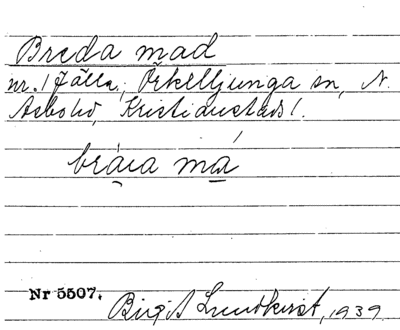 Breda mad
nr. 1 Jälla, Örkelljunga sn, N.
Åsbohd, Kristianstads l.
bráɩa má
Nr 5507.
Birgit Lundkvist, 1939